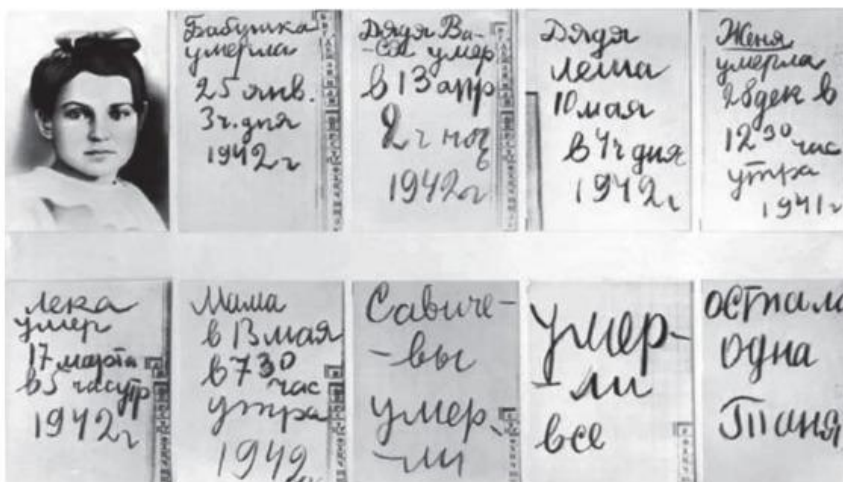 Бабушка
умерла
25 янв.
3 ч. дня
1942 г
Дядя Ва-
-ся умер
в 13 апр
2 ч ноч
1942 г
Дядя
Леша
10 мая
в 4 ч дня
1942 г
Женя
умерла
28 дек в
12 30 час
утра
1941 г
Лека
умер
17 марта
в 5 час утр
1942 г
Мама
в 13 мая
в 7 30
час
утра
1942
Савиче-
-вы
умер-
-ли
умер-
-ли
все
остала
одна
Таня